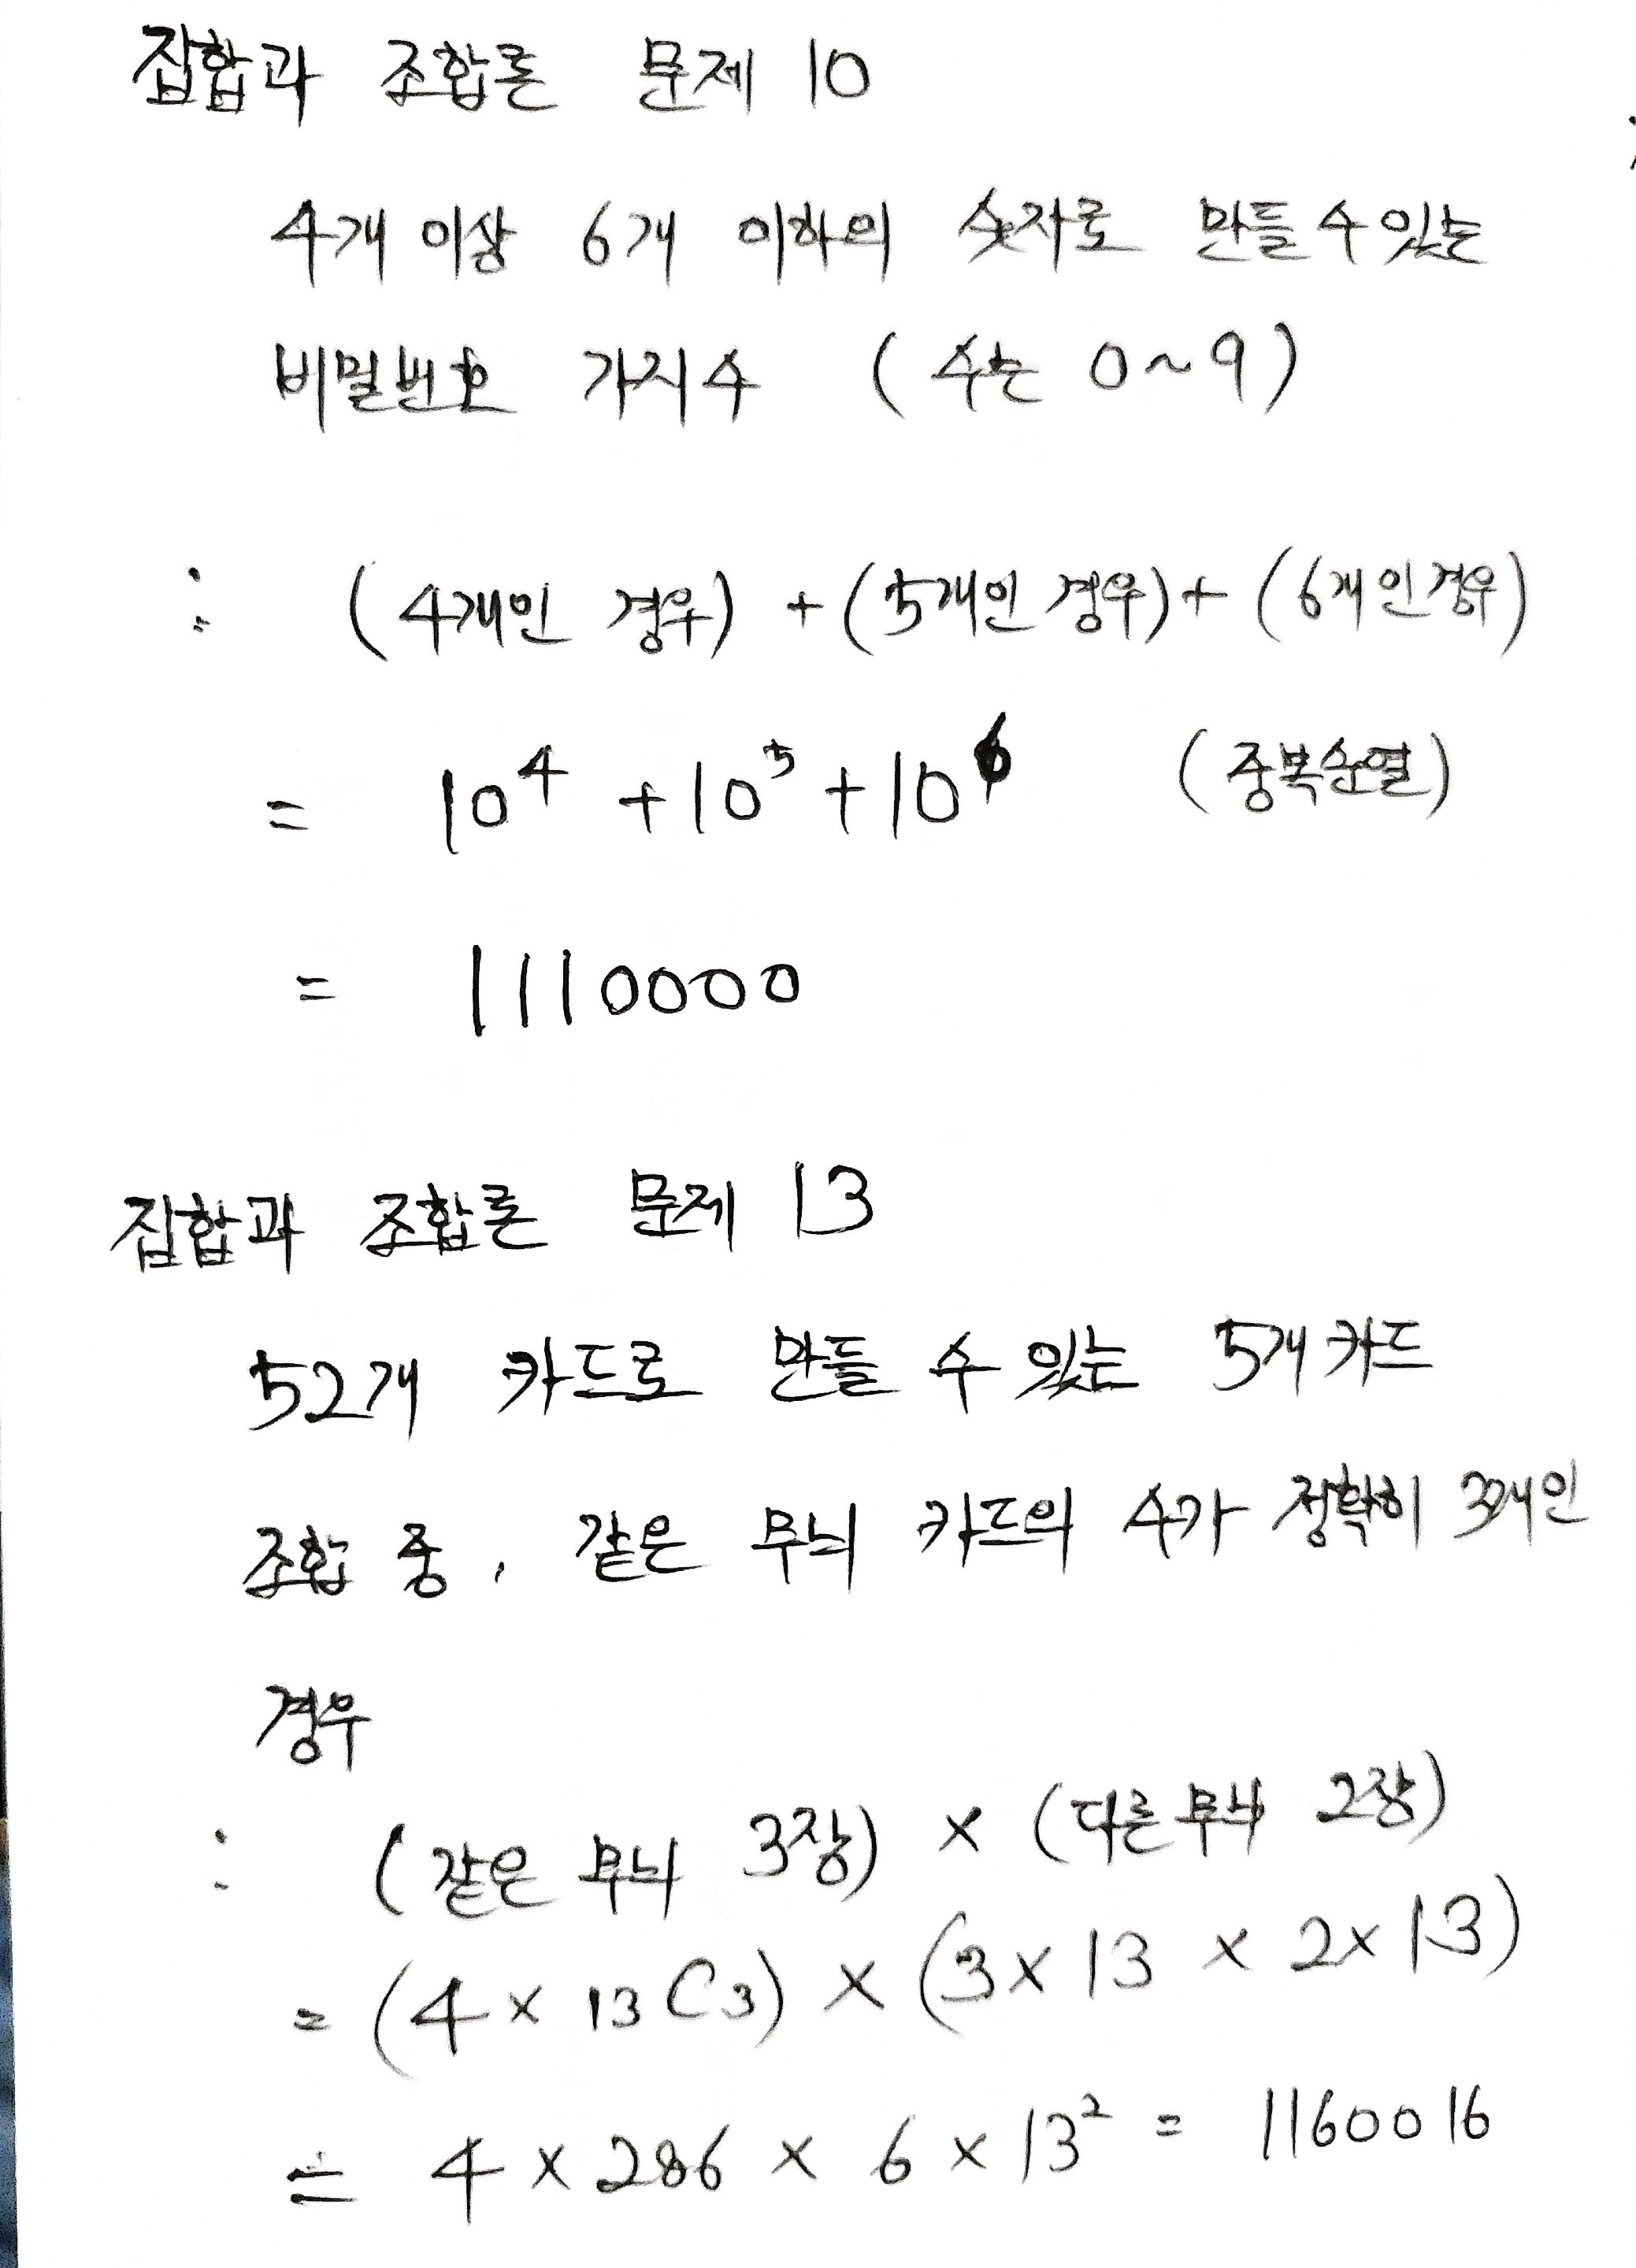 집합과 조합론 문제 10
4개 이상 6개 이하의 숫자로 만들 수 있는
비밀번호 가지수 (수는 0~9)
: (4개인 경우) + (5개인 경우) + (6개인 경우)
= 10⁴ + 10⁵ + 10⁶ (중복순열)
= 1110000
집합과 조합론 문제 13
52개 카드로 만들 수 있는 5개 카드
조합 중, 같은 무늬 카드의 수가 정확히 3개인
경우
: (같은 무늬 3장) × (다른 무늬 2장)
= (4 × ₁₃C₃) × (3 × 13 × 2 × 13)
= 4 × 286 × 6 × 13² = 1160016